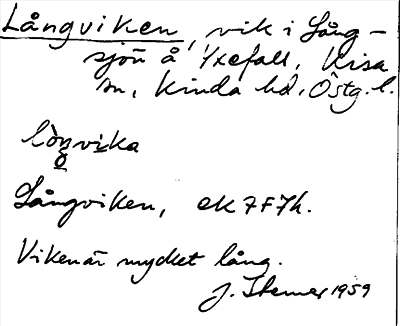 Långviken, vik i Lång-
sjön å Yxefall, Kisa
sn, Kinda hd, Östg. l.
lòŋvika
Långviken, ek 7F7h.
Viken är mycket lång.
J. 1959